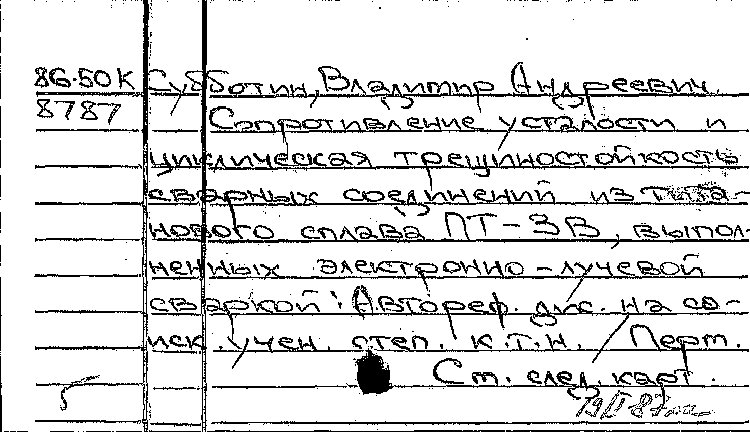 86-50К Субботин, Владимир Андреевич.
8787 Сопротивление усталости и
циклическая трещиностойкость
сварных соединений из тита-
нового сплава ПТ-3В, выпол-
ненных электронно-лучевой
сваркой: Автореф. дис. на со-
иск. учен. степ. к.т.н. / Перм.
См. след. карт.
5